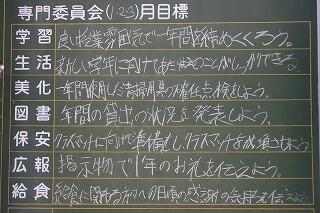 専門委員会(1・2・3)月目標
学習 良い授業雰囲気で一年間を締めくくろう。
生活 新しい学年に向けてあたりまえのことがしっかりできる。
美化 一年間使用した清掃用具の確認点検をしよう。
図書 年間の貸出の状況を発表しよう。
保安 クラスマッチに向けて準備をし、クラスマッチを成功させよう。
広報 掲示物で1年のお礼を伝えよう。
給食 給食に関わる方々への日頃の感謝の気持ちを伝えよう